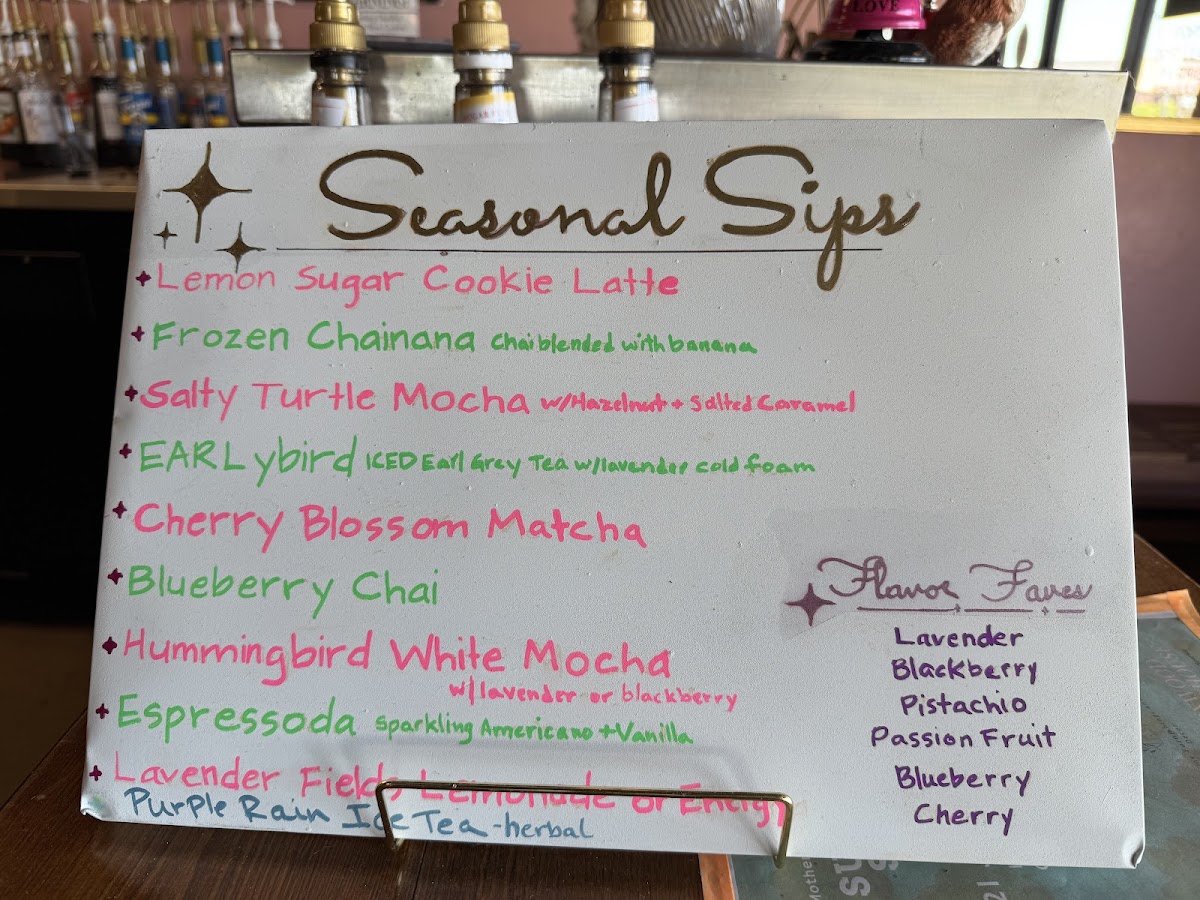 LOVE
Seasonal Sips
Lemon Sugar Cookie Latte
Frozen Chainana Chai blended with banana
Salty Turtle Mocha w/Hazelnut + Salted Caramel
EARLybird ICED Earl Grey Tea w/lavender cold foam
Cherry Blossom Matcha
Blueberry Chai
Hummingbird White Mocha
w/lavender or blackberry
Espressoda Sparkling Americano + Vanilla
Lavender Fields Lemonade or Energy
Purple Rain Ice Tea - herbal
Flavor Faves
Lavender
Blackberry
Pistachio
Passion Fruit
Blueberry
Cherry